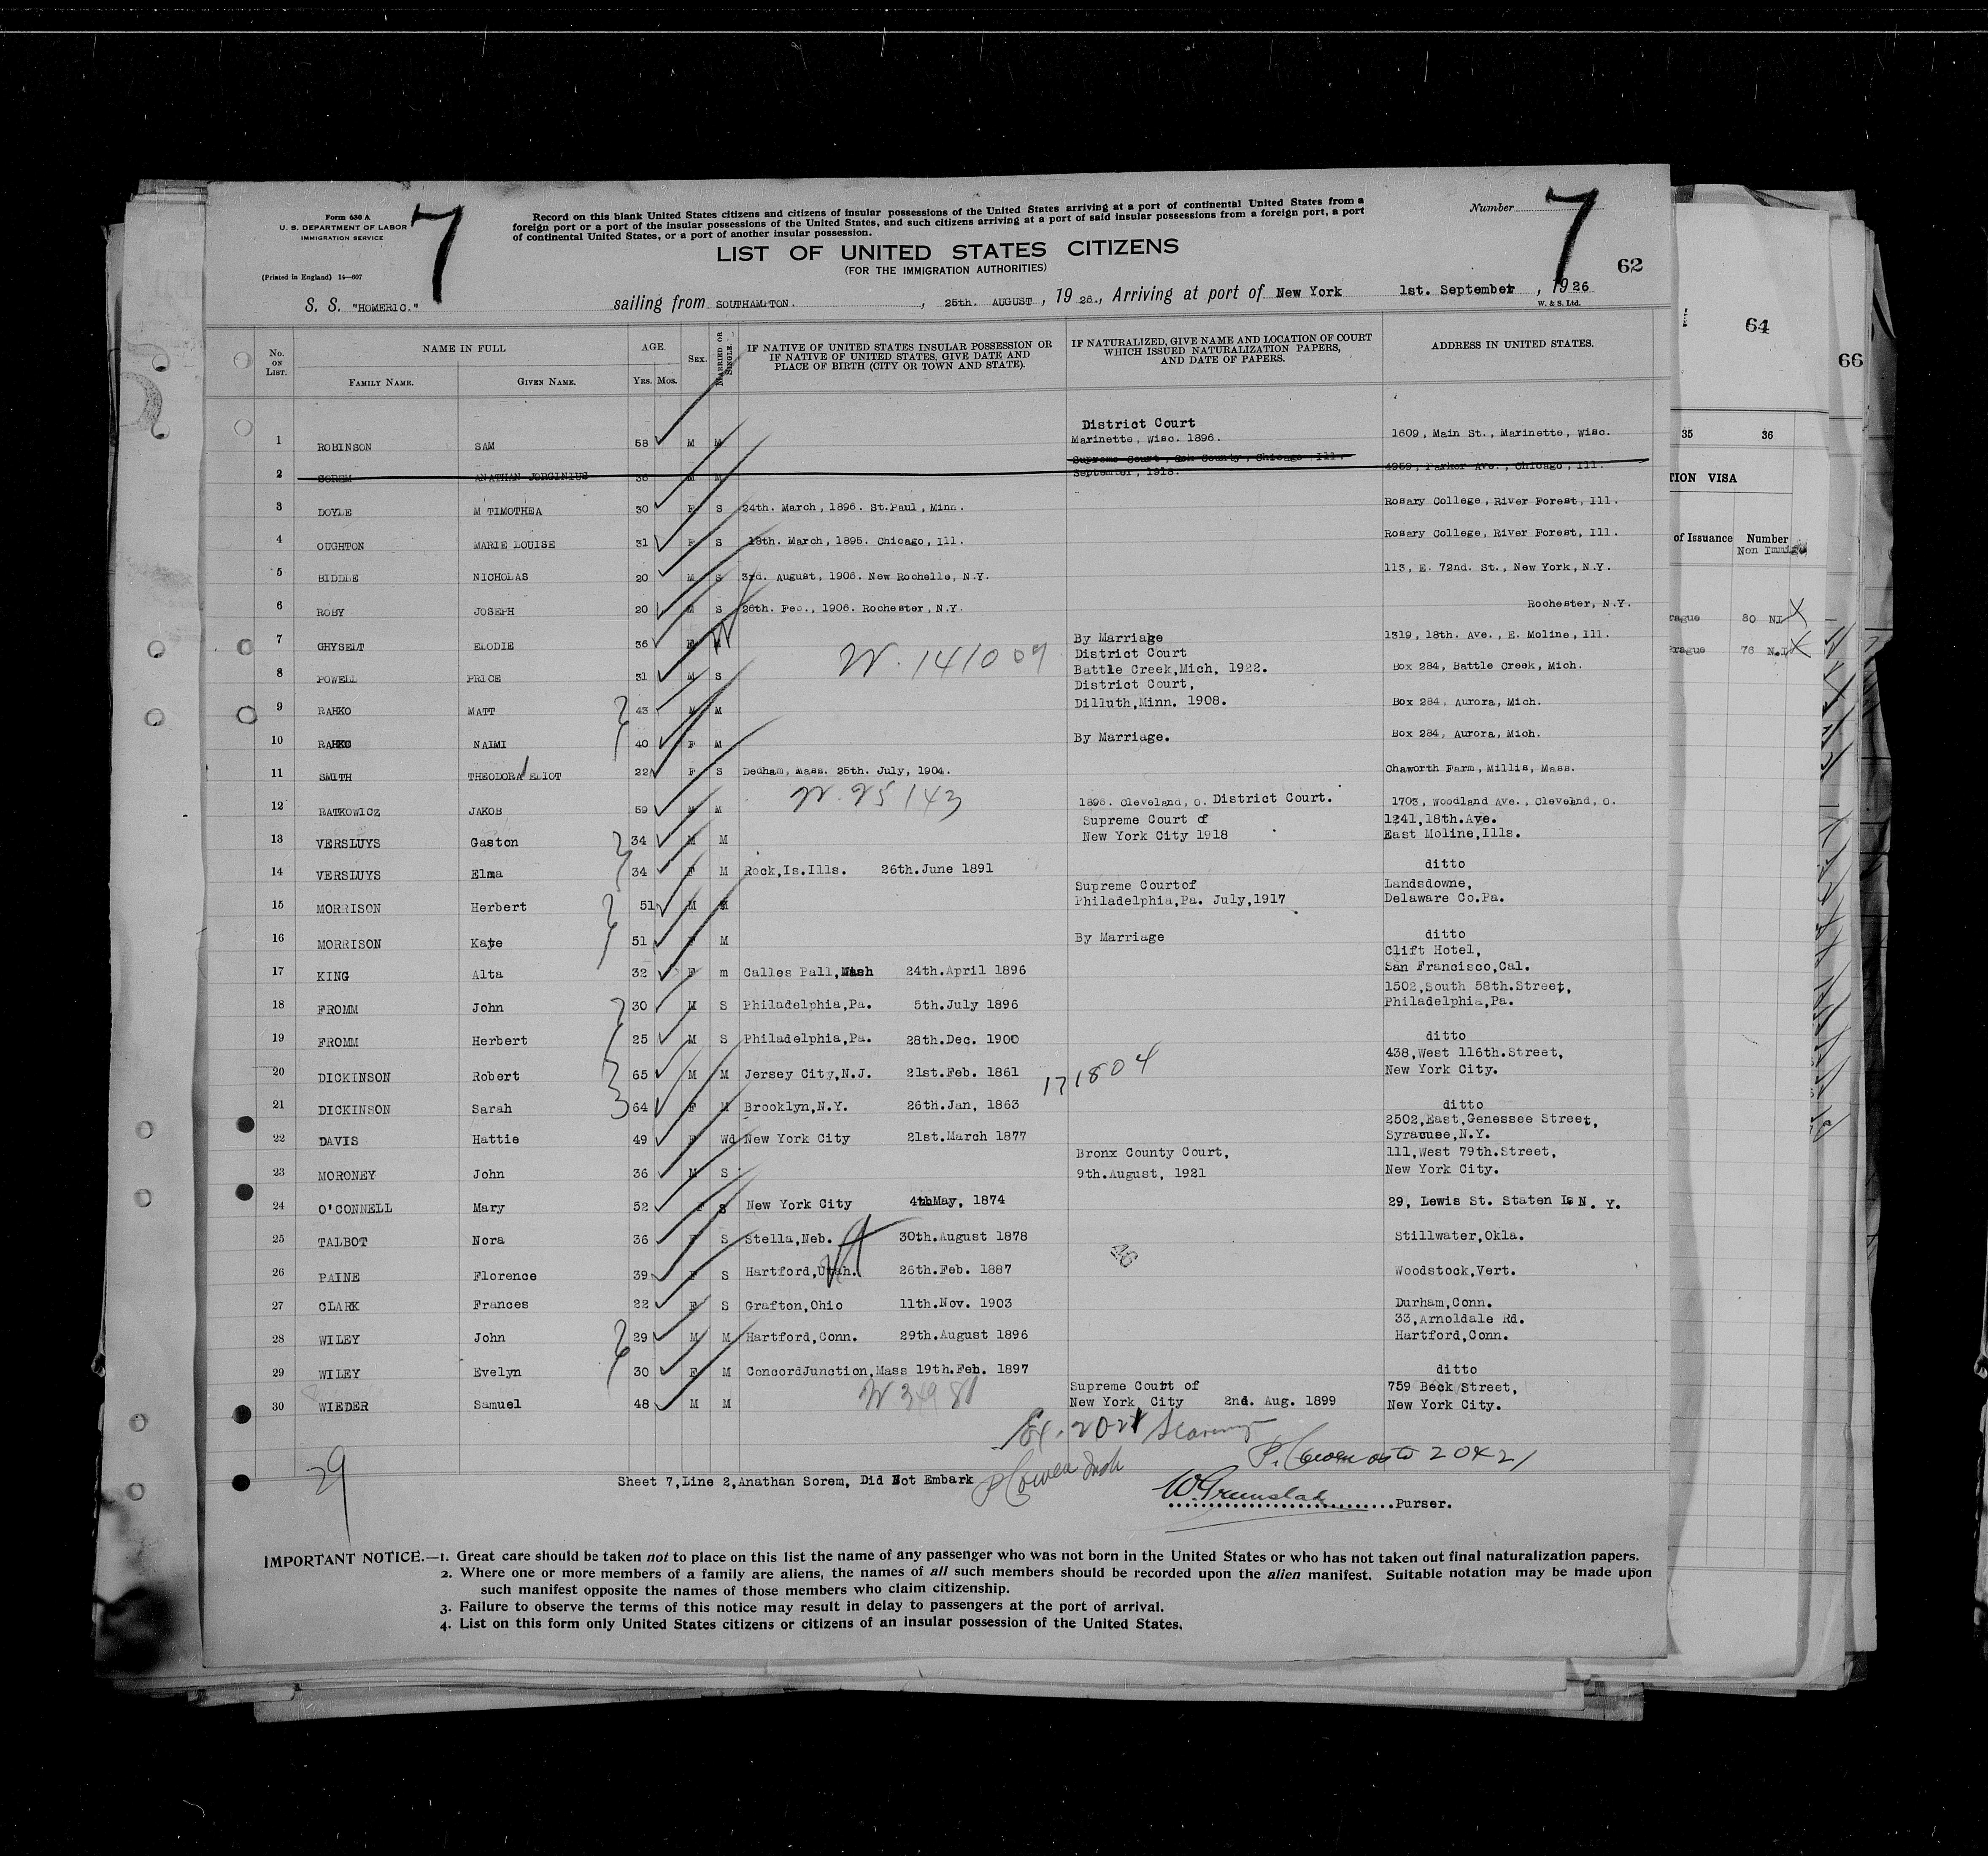 Form 630 A
U. S. DEPARTMENT OF LABOR
IMMIGRATION SERVICE
(Printed in England) 14—607
7
Record on this blank United States citizens and citizens of insular possessions of the United States arriving at a port of continental United States from a
foreign port or a port of the insular possessions of the United States, and such citizens arriving at a port of said insular possessions from a foreign port, a port
of continental United States, or a port of another insular possession.
Number
7
62
LIST OF UNITED STATES CITIZENS
(FOR THE IMMIGRATION AUTHORITIES)
S. S. "HOMERIC." sailing from SOUTHAMPTON. , 25th. AUGUST , 19 26., Arriving at port of New York 1st. September , 1926
W. & S. Ltd.
No. ON LIST. NAME IN FULL AGE. SEX. MARRIED OR SINGLE. IF NATIVE OF UNITED STATES INSULAR POSSESSION OR IF NATIVE OF UNITED STATES, GIVE DATE AND PLACE OF BIRTH (CITY OR TOWN AND STATE). IF NATURALIZED, GIVE NAME AND LOCATION OF COURT WHICH ISSUED NATURALIZATION PAPERS, AND DATE OF PAPERS. ADDRESS IN UNITED STATES.
FAMILY NAME. GIVEN NAME. YRS. MOS.
District Court
1 ROBINSON SAM 58 M M Marinette, Wisc. 1896. 1609, Main St., Marinette, Wisc.
Supreme Court, County, Chicago, Ill.
2 SOREM ANATHAN JORGINIUS 36 M M September, 1918. 4959, Parker Ave., Chicago, Ill.
3 DOYLE M TIMOTHEA 30 F S 24th. March, 1896. St.Paul, Minn. Rosary College, River Forest, Ill.
4 OUGHTON MARIE LOUISE 31 F S 18th. March, 1895. Chicago, Ill. Rosary College, River Forest, Ill.
5 BIDDLE NICHOLAS 20 M S 3rd. August, 1906. New Rochelle, N.Y. 113, E. 72nd. St., New York, N.Y.
6 ROBY JOSEPH 20 M S 26th. Feb., 1906. Rochester, N.Y. Rochester, N.Y.
7 GHYSELT ELODIE 36 F M By Marriage 1319, 18th. Ave., E. Moline, Ill.
W. 141009
District Court
8 POWELL PRICE 31 M S Battle Creek,Mich. 1922. Box 284, Battle Creek, Mich.
District Court,
9 RAHKO MATT 43 M M Dilluth,Minn. 1908. Box 284, Aurora, Mich.
10 RAHKO NAIMI 40 F M By Marriage. Box 284, Aurora, Mich.
11 SMITH THEODORA ELIOT 22 F S Dedham, Mass. 25th. July, 1904. Chaworth Farm, Millis, Mass.
W. 25143
12 RATKOWICZ JAKOB 59 M M 1896. Cleveland, O. District Court. 1703, Woodland Ave., Clevelnd, O.
Supreme Court of 1241,18th.Ave.
13 VERSLUYS Gaston 34 M M New York City 1918 East Moline,Ills.
14 VERSLUYS Elma 34 F M Rock,Is.Ills. 26th.June 1891 ditto
Supreme Courtof Landsdowne,
15 MORRISON Herbert 51 M M Philadelphia,Pa. July,1917 Delaware Co.Pa.
16 MORRISON Kate 51 F M By Marriage ditto
Clift Hotel,
17 KING Alta 32 F m Calles Pall,Wash 24th.April 1896 San Francisco,Cal.
1502,South 58th.Street,
18 FROMM John 30 M S Philadelphia,Pa. 5th.July 1896 Philadelphia,Pa.
19 FROMM Herbert 25 M S Philadelphia,Pa. 28th.Dec. 1900 ditto
438,West 116th.Street,
20 DICKINSON Robert 65 M M Jersey City,N.J. 21st.Feb. 1861 171804 New York City.
21 DICKINSON Sarah 64 F M Brooklyn,N.Y. 26th.Jan, 1863 ditto
2502,East,Genessee Street,
22 DAVIS Hattie 49 F Wd New York City 21st.March 1877 Syracuse,N.Y.
Bronx County Court, 111,West 79th.Street,
23 MORONEY John 36 M S 9th.August, 1921 New York City.
24 O'CONNELL Mary 52 F S New York City 4thMay, 1874 29, Lewis St. Staten Is N. Y.
25 TALBOT Nora 36 F S Stella,Neb. 30th.August 1878 Stillwater,Okla.
26 PAINE Florence 39 F S Hartford,Utah. 26th.Feb. 1887 Woodstock,Vert.
27 CLARK Frances 22 F S Grafton,Ohio 11th.Nov. 1903 Durham,Conn.
33,Arnoldale Rd.
28 WILEY John 29 M M Hartford,Conn. 29th.August 1896 Hartford,Conn.
29 WILEY Evelyn 30 F M ConcordJunction,Mass 19th.Feb. 1897 ditto
Supreme Court of 759 Beck Street,
30 WIEDER Samuel 48 M M New York City 2nd. Aug. 1899 New York City.
29
Sheet 7,Line 2,Anathan Sorem, Did Not Embark
Purser.
IMPORTANT NOTICE.—1. Great care should be taken not to place on this list the name of any passenger who was not born in the United States or who has not taken out final naturalization papers.
2. Where one or more members of a family are aliens, the names of all such members should be recorded upon the alien manifest. Suitable notation may be made upon
such manifest opposite the names of those members who claim citizenship.
3. Failure to observe the terms of this notice may result in delay to passengers at the port of arrival.
4. List on this form only United States citizens or citizens of an insular possession of the United States.
64
66
35 36
TION VISA
of Issuance Number
Non
rague 80 NI
Prague 76 N.I